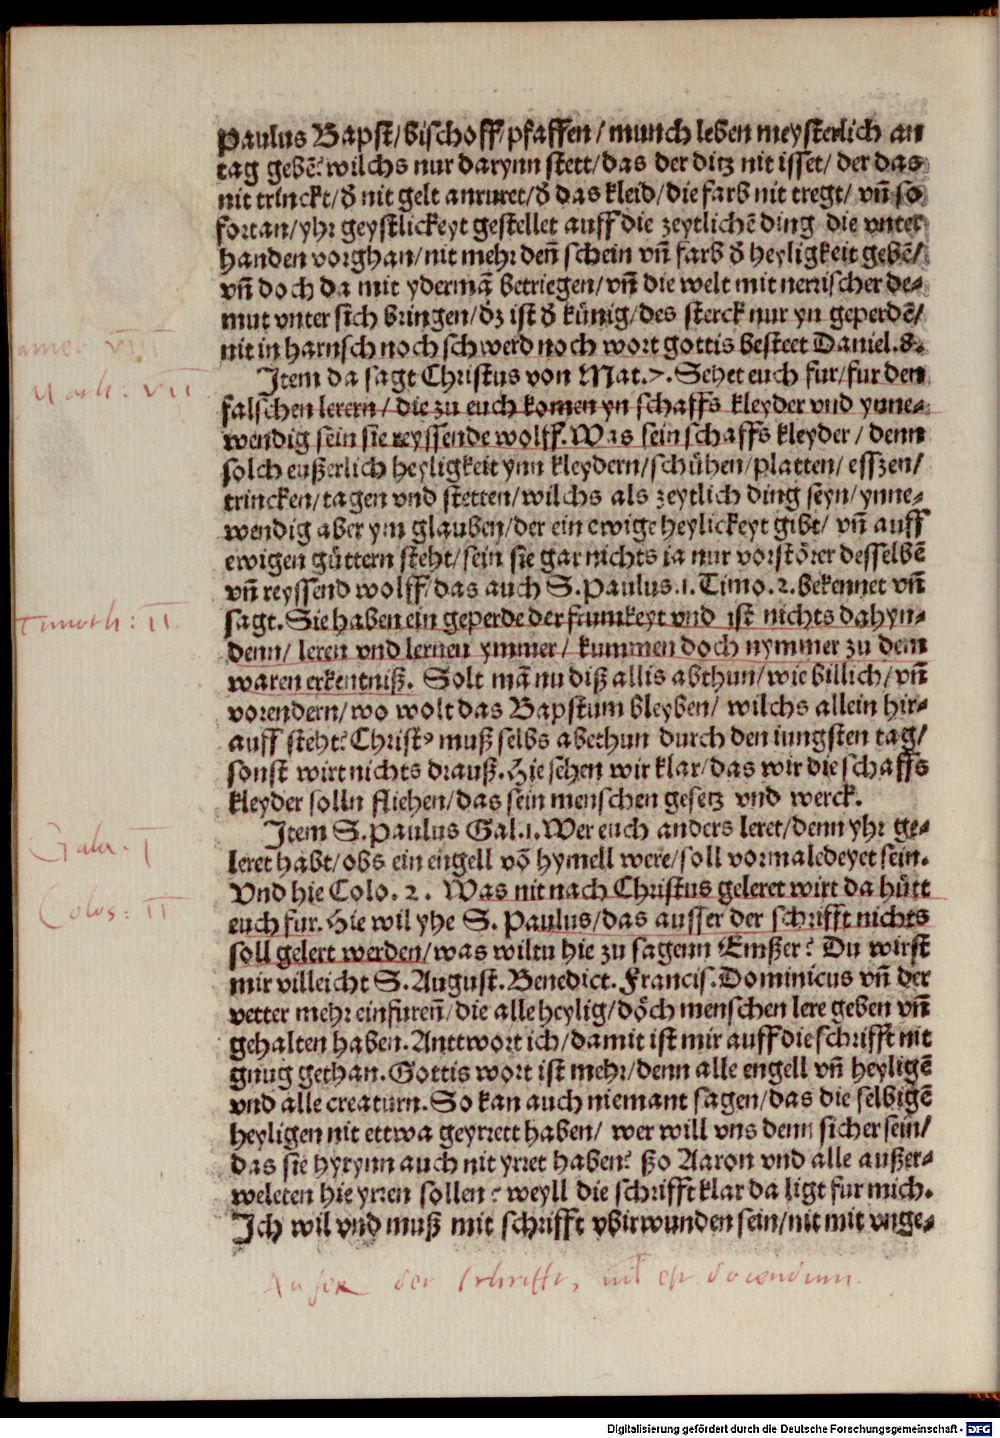 Paulus Bapst/bischoff/pfaffen/munch leben meysterlich an
tag gebē? wilchs nur darynn stett/das der ditz nit isset/der das
nit trinckt/d̄ nit gelt anruret/d̄ das kleid/die farb nit tregt/ vn̄ so
fortan/yhr geystlickeyt gestellet auff die zeytlichē ding die vnter
handen vorghan/nit mehr den̄ schein vn̄ farb d̄ heyligkeit gebē/
vn̄ doch da mit ydermā betriegen/vn̄ die welt mit nerrischer de-
mut vnter sich bringen/dz ist d̄ künig/des sterck nur yn geperdē/
nit in harnsch noch schwerd noch wort gottis besteet Daniel.8.
Item da sagt Christus von Mat.7. Sehet euch fur/fur den
Math: VII
falschen lerern/die zu euch komen yn schaffs kleyder vnd ynne-
wendig sein sie reyssende wolff. Was sein schaffs kleyder/denn
solch eußerlich heyligkeit ynn kleydern/schühen/platten/esszen/
trincken/tagen vnd stetten/wilchs als zeytlich ding seyn/ynne-
wendig aber ym glauben/der ein ewige heylickeyt gibt/ vn̄ auff
ewigen güttern steht/sein sie gar nichts ia nur vorstörer desselbē
vn̄ reyssend wolff/das auch S. Paulus.1.Timo.2.bekennet vn̄
Timoth: II
sagt. Sie haben ein geperde der frumkeyt vnd ist nichts dahyn-
denn/ leren vnd lernen ymmer/ kummen doch nymmer zu dem
waren erkentniß. Solt mā nu diß allis abthun/wie billich/vn̄
vorendern/wo wolt das Bapstum bleyben/ wilchs allein hir-
auff steht? Christꝰ muß selbs abethun durch den iungsten tag/
sonst wirt nichts drauß. Hie sehen wir klar/das wir die schaffs
kleyder solln fliehen/das sein menschen gesetz vnd werck.
Item S. Paulus Gal.1. Wer euch anders leret/denn yhr ge-
Gala. I
leret habt/obs ein engell vō hymell were/soll vormaledeyet sein.
Vnd hie Colo. 2. Was nit nach Christus geleret wirt da hütt
Colos: II
euch fur. Hie wil yhe S. Paulus/das ausser der schrifft nichts
soll gelert werden/was wiltu hie zu sagenn Emßer? Du wirst
mir villeicht S. August. Benedict. Francis. Dominicus vn̄ der
vetter mehr einfuren̄/die alle heylig/döch menschen lere geben vn̄
gehalten haben. Anttwort ich/damit ist mir auff die schrifft nit
gnug gethan. Gottis wort ist mehr/denn alle engell vn̄ heyligē
vnd alle creaturn. So kan auch niemant sagen/das die selbigē
heyligen nit ettwa geyrrett haben/ wer will vns denn sicher sein/
das sie hyrynn auch nit yrret haben? ßo Aaron vnd alle außer-
weleten hie yrren sollen? weyll die schrifft klar da ligt fur mich.
Ich wil vnd muß mit schrifft vbirwunden sein/nit mit vnge-
Außer der schrifft, nil est docendum.
Digitalisierung gefördert durch die Deutsche Forschungsgemeinschaft - DFG